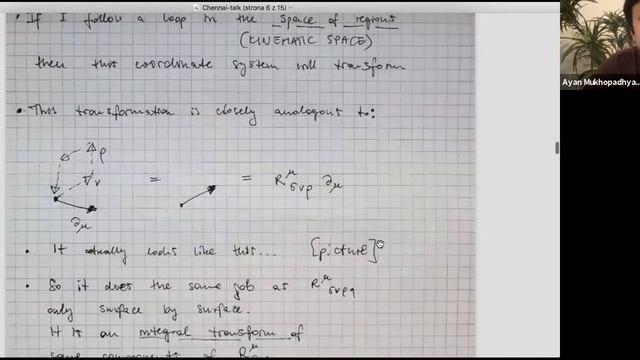 Chennai-talk (strona 6 z 15)
• If I follow a loop in the space of regions
(KINEMATIC SPACE)
then that coordinate system will transform
• This transformation is closely analogous to:
ρ
ν
∂μ
= = R^μ_σνρ ∂μ
• It actually looks like this... [picture]
• So it does the same job as R^μ_σνρ,
only surface by surface.
It is an integral transform of
some components of R^μ
Ayan Mukhopadhya...